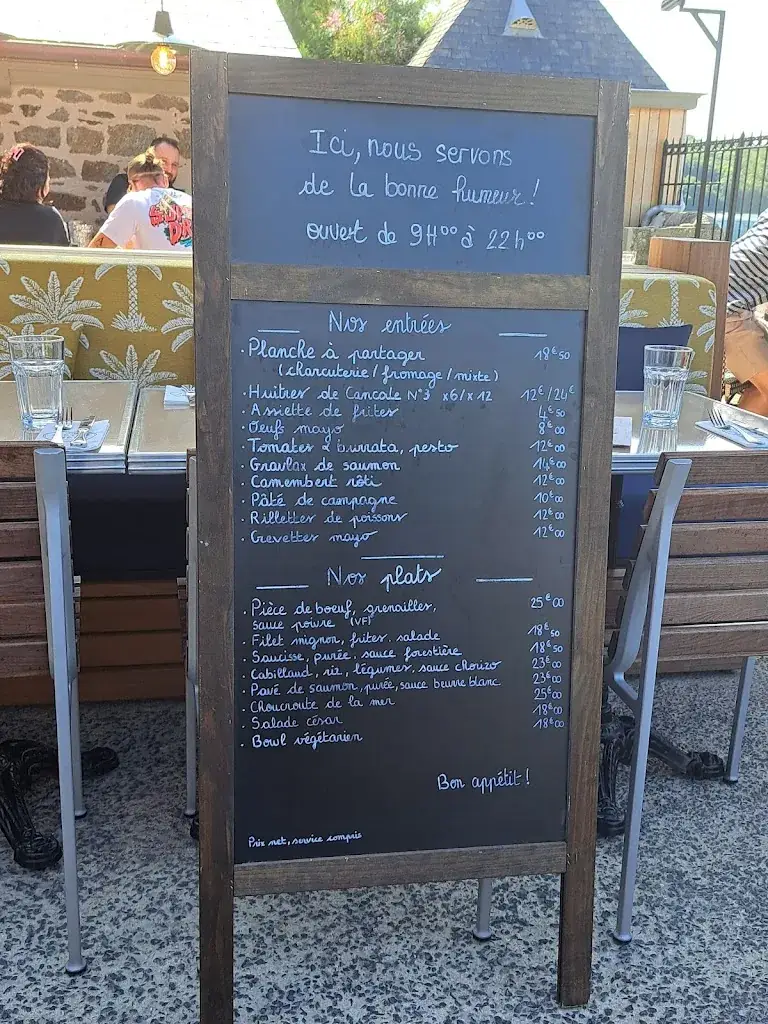 Ici, nous servons
de la bonne humeur !
ouvert de 9H00 à 22h00
Nos entrées
. Planche à partager 18€50
(charcuterie / fromage / mixte)
. Huîtres de Cancale N°3 x6/x12 12€/24€
. Assiette de frites 4€50
. Oeufs mayo 8€00
. Tomates & burrata, pesto 12€00
. Gravlax de saumon 14€00
. Camembert rôti 12€00
. Pâté de campagne 10€00
. Rillettes de poissons 12€00
. Crevettes mayo 12€00
Nos plats
. Pièce de boeuf, grenailles, 25€00
sauce poivre (VF)
. Filet mignon, frites, salade 18€50
. Saucisse, purée, sauce forestière 18€50
. Cabillaud, riz, légumes, sauce chorizo 23€00
. Pavé de saumon, purée, sauce beurre blanc 23€00
. Choucroute de la mer 25€00
. Salade césar 18€00
. Bowl végétarien 18€00
Bon appétit !
Prix net, service compris